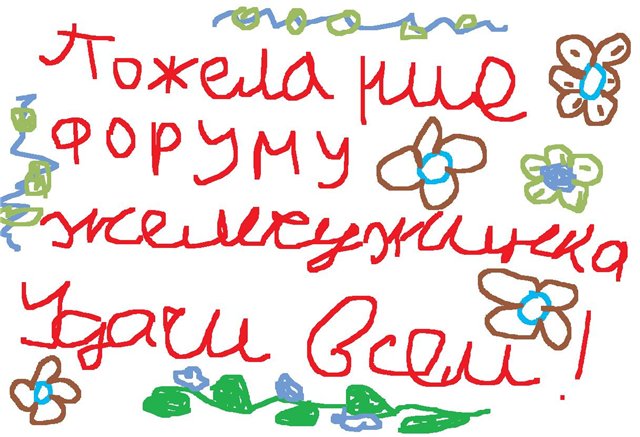 Пожелание
ФОРУМУ
жемчужинка
Удачи всем!